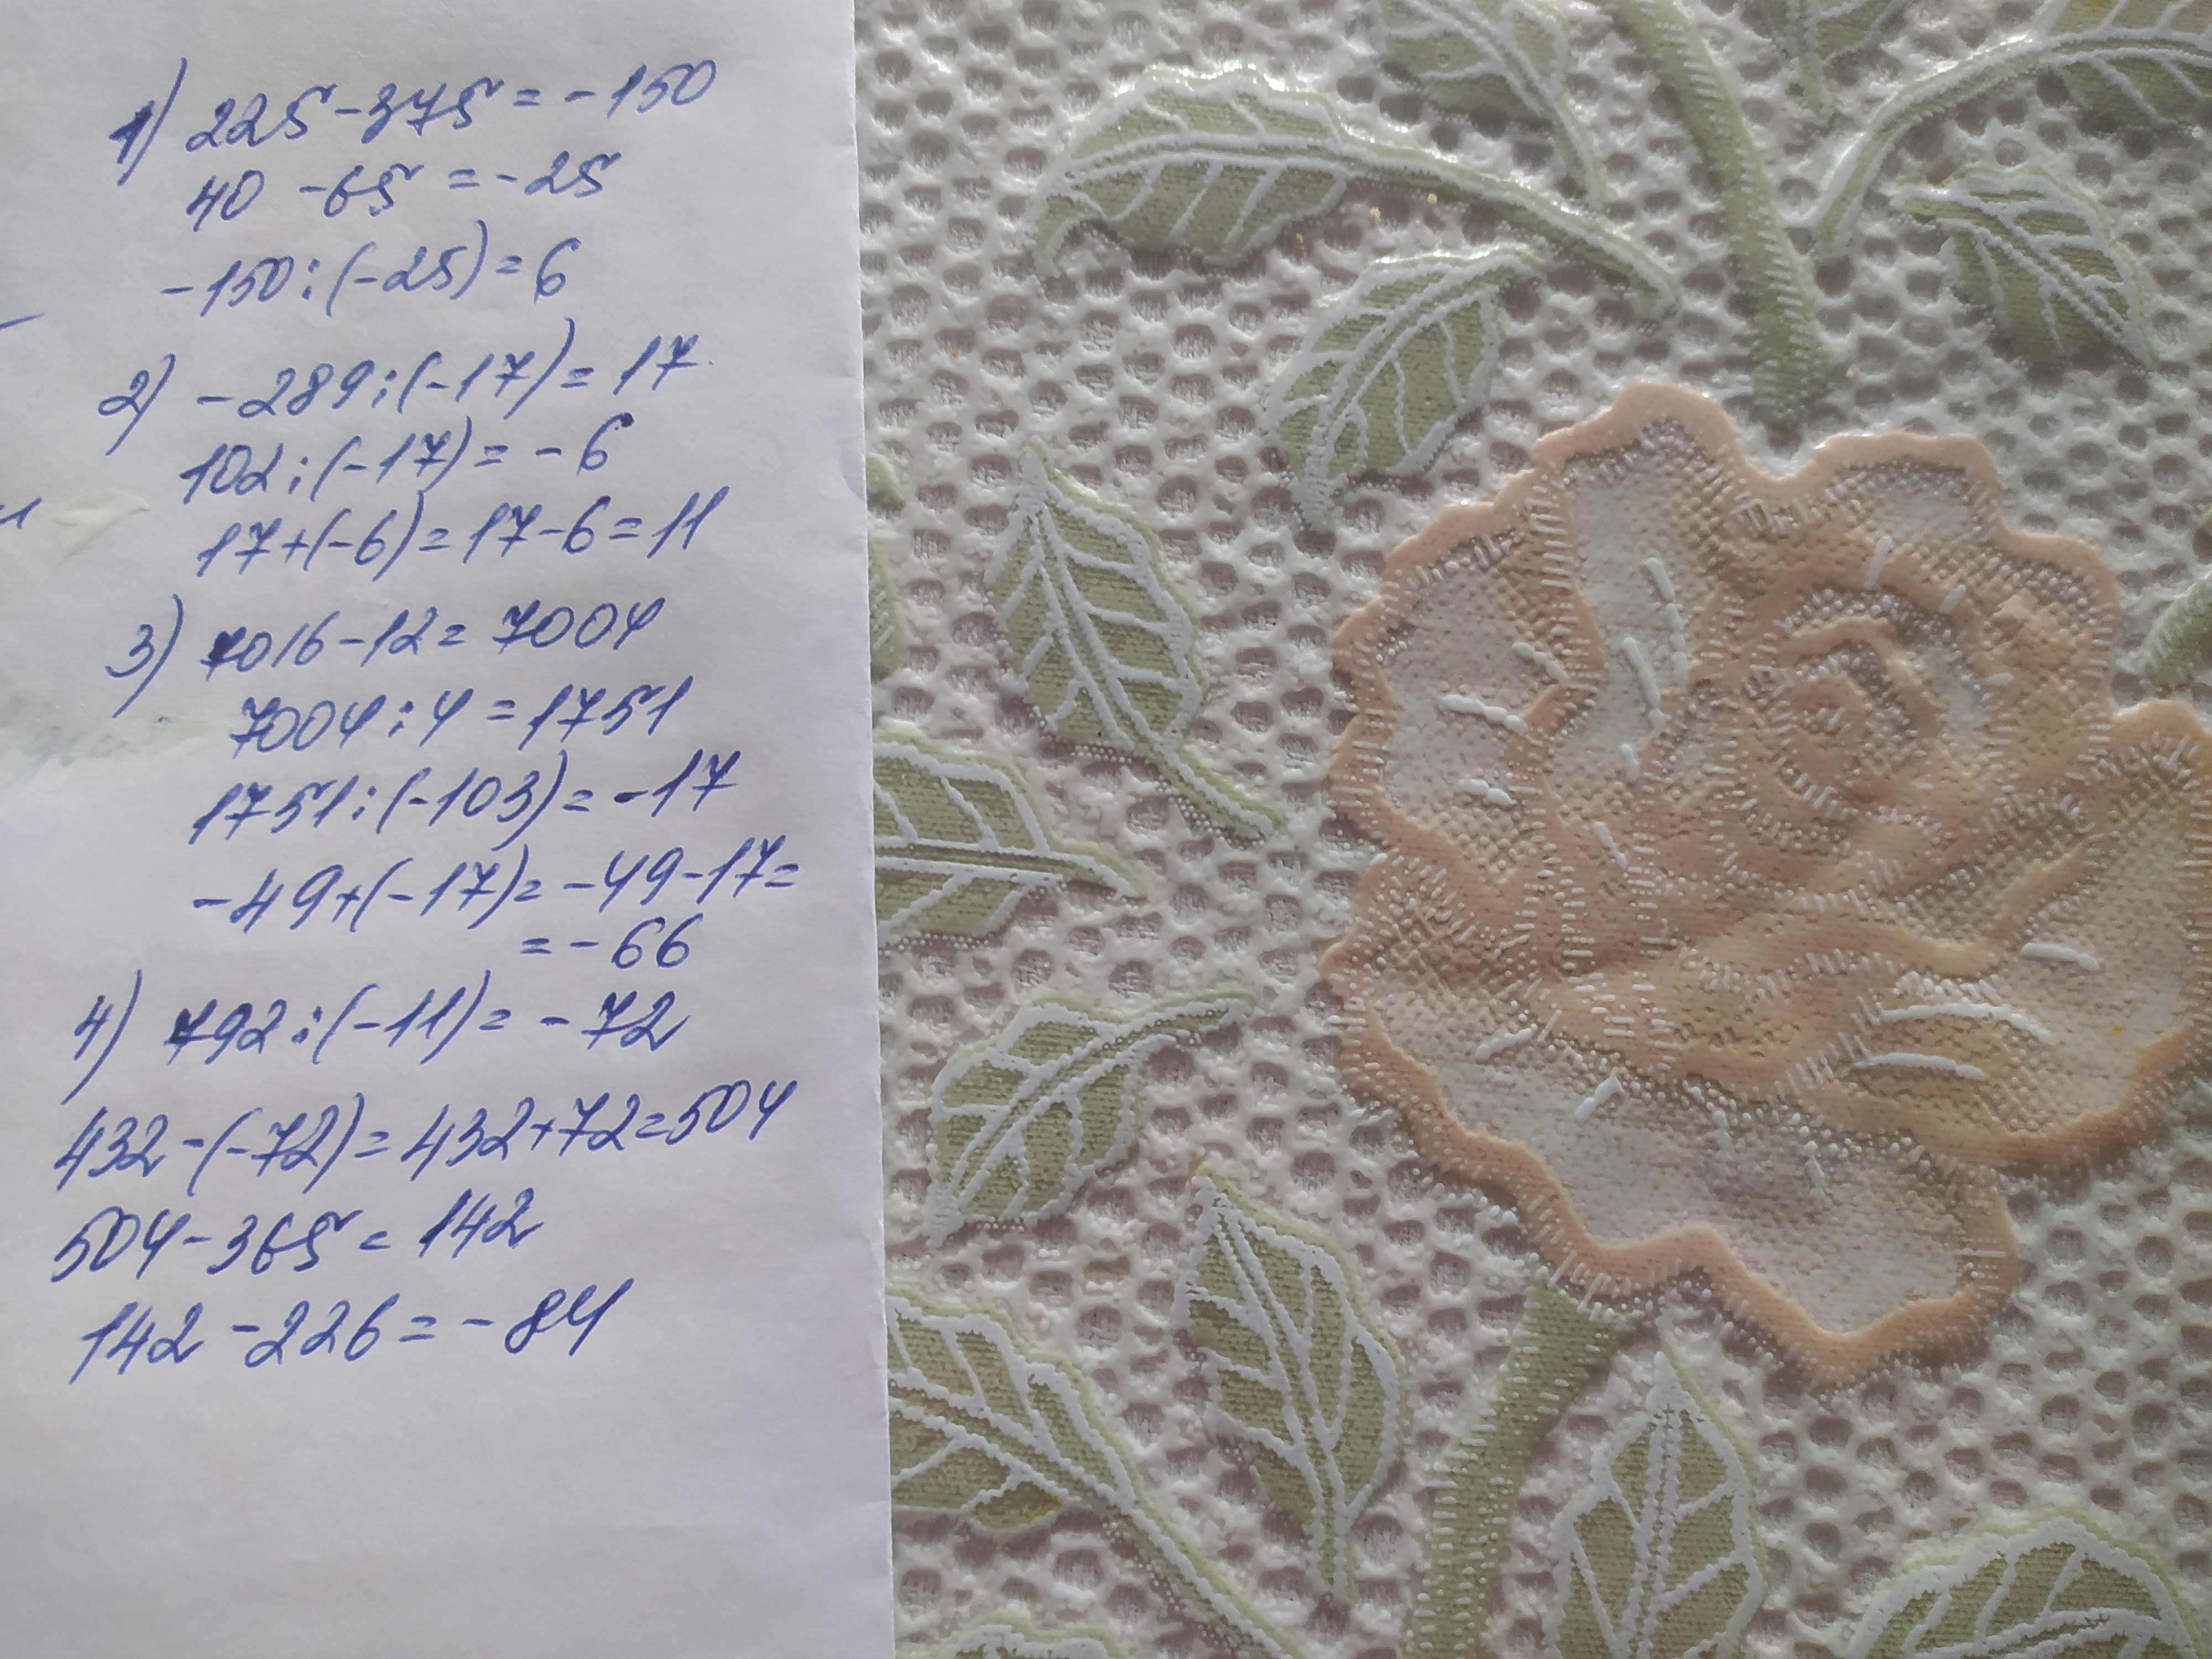 1) 225-375=-150
40 -65 =-25
-150:(-25)=6
2) -289:(-17)=17
102:(-17)=-6
17+(-6)=17-6=11
3) 7016-12=7004
7004:4=1751
1751:(-103)=-17
-49+(-17)=-49-17=
=-66
4) 792:(-11)=-72
432-(-72)=432+72=504
504-365=142
142-226=-84